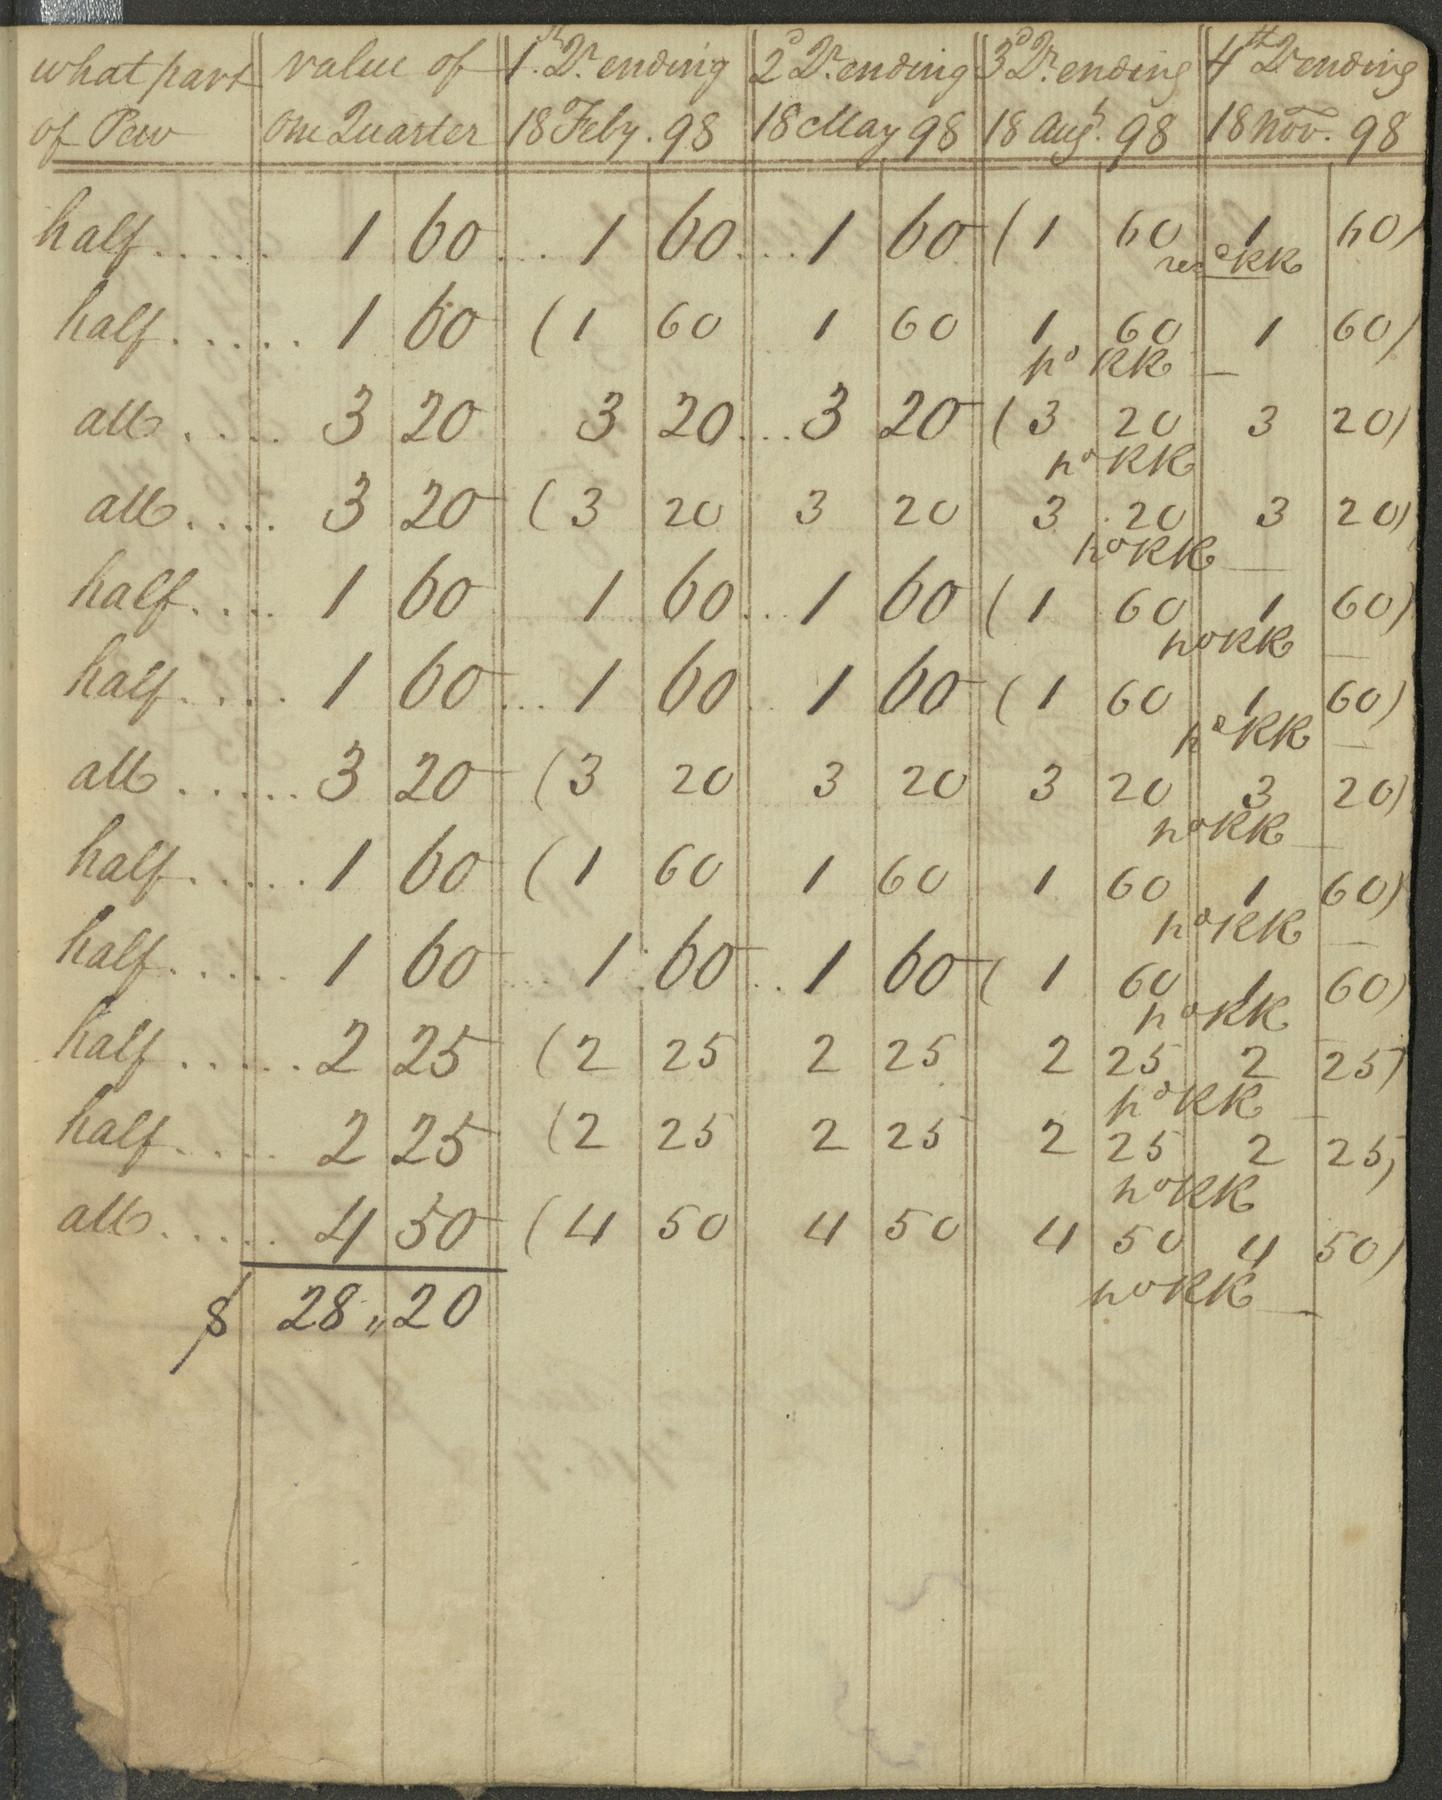 what part value of 1.st Qr. ending 2d Qr. ending 3d Qr. ending 4th Qr ending
of Pew one Quarter 18 Feby. 98 18 May 98 18 Augt. 98 18 Nov. 98
half..... 1 60 ... 1 60 ... 1 60 ( 1 60 1 60)
recd KK
half..... 1 60 ( 1 60 1 60 1 60 1 60)
pd KK
all.... 3 20 3 20 ... 3 20 ( 3 20 3 20)
pd KK
all.... 3 20 ( 3 20 3 20 3 20 3 20)
pd KK
half.... 1 60 1 60 ... 1 60 ( 1 60 1 60)
pd KK
half.... 1 60 ... 1 60 1 60 ( 1 60 1 60)
pd KK
all..... 3 20 ( 3 20 3 20 3 20 3 20)
pd KK
half..... 1 60 ( 1 60 1 60 1 60 1 60)
pd KK
half..... 1 60 ... 1 60 ... 1 60 ( 1 60 1 60)
pd KK
half..... 2 25 ( 2 25 2 25 2 25 2 25)
pd KK
half.... 2 25 ( 2 25 2 25 2 25 2 25)
pd KK
all..... 4 50 ( 4 50 4 50 4 50 4 50)
pd KK
$ 28 ,, 20